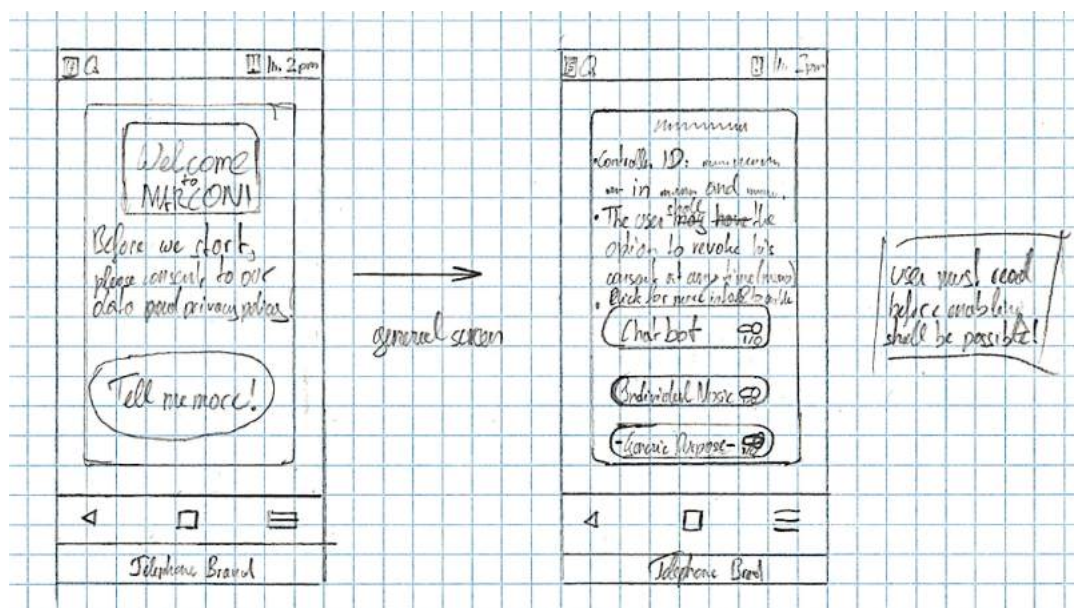 2pm
Welcome
to
MARCONI
Before we start,
please consent to our
data and privacy policy!
Tell me more!
Telephone Brand
general screen
2pm
Controller ID:
in and
shall
• The user may have the
option to revoke his
consent at any time
• Click for more info &
Chatbot
I/O
Individual Music
-Generic Purpose-
Telephone Brand
user must read
before enabling
shall be possible!